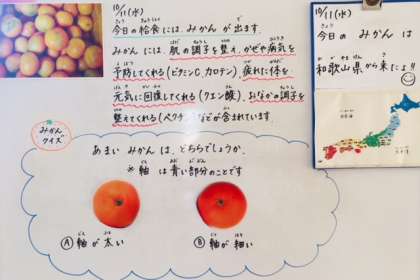 10/11(水)
今日の給食には みかん が 出ます。
みかん には、肌の調子を整え、かぜや病気を
予防してくれる(ビタミンC、カロテン)、疲れた体を
元気に回復してくれる(クエン酸)、おなかの調子を
整えてくれる(ペクチン)などが含まれています
みかん
クイズ
あまい みかん は、どちらでしょうか。
※ 軸 は 青い部分のことです
Ⓐ 軸が 太い
Ⓑ 軸が 細い
10/11(水)
今日 の みかん は
和歌山県 から 来たよ!!